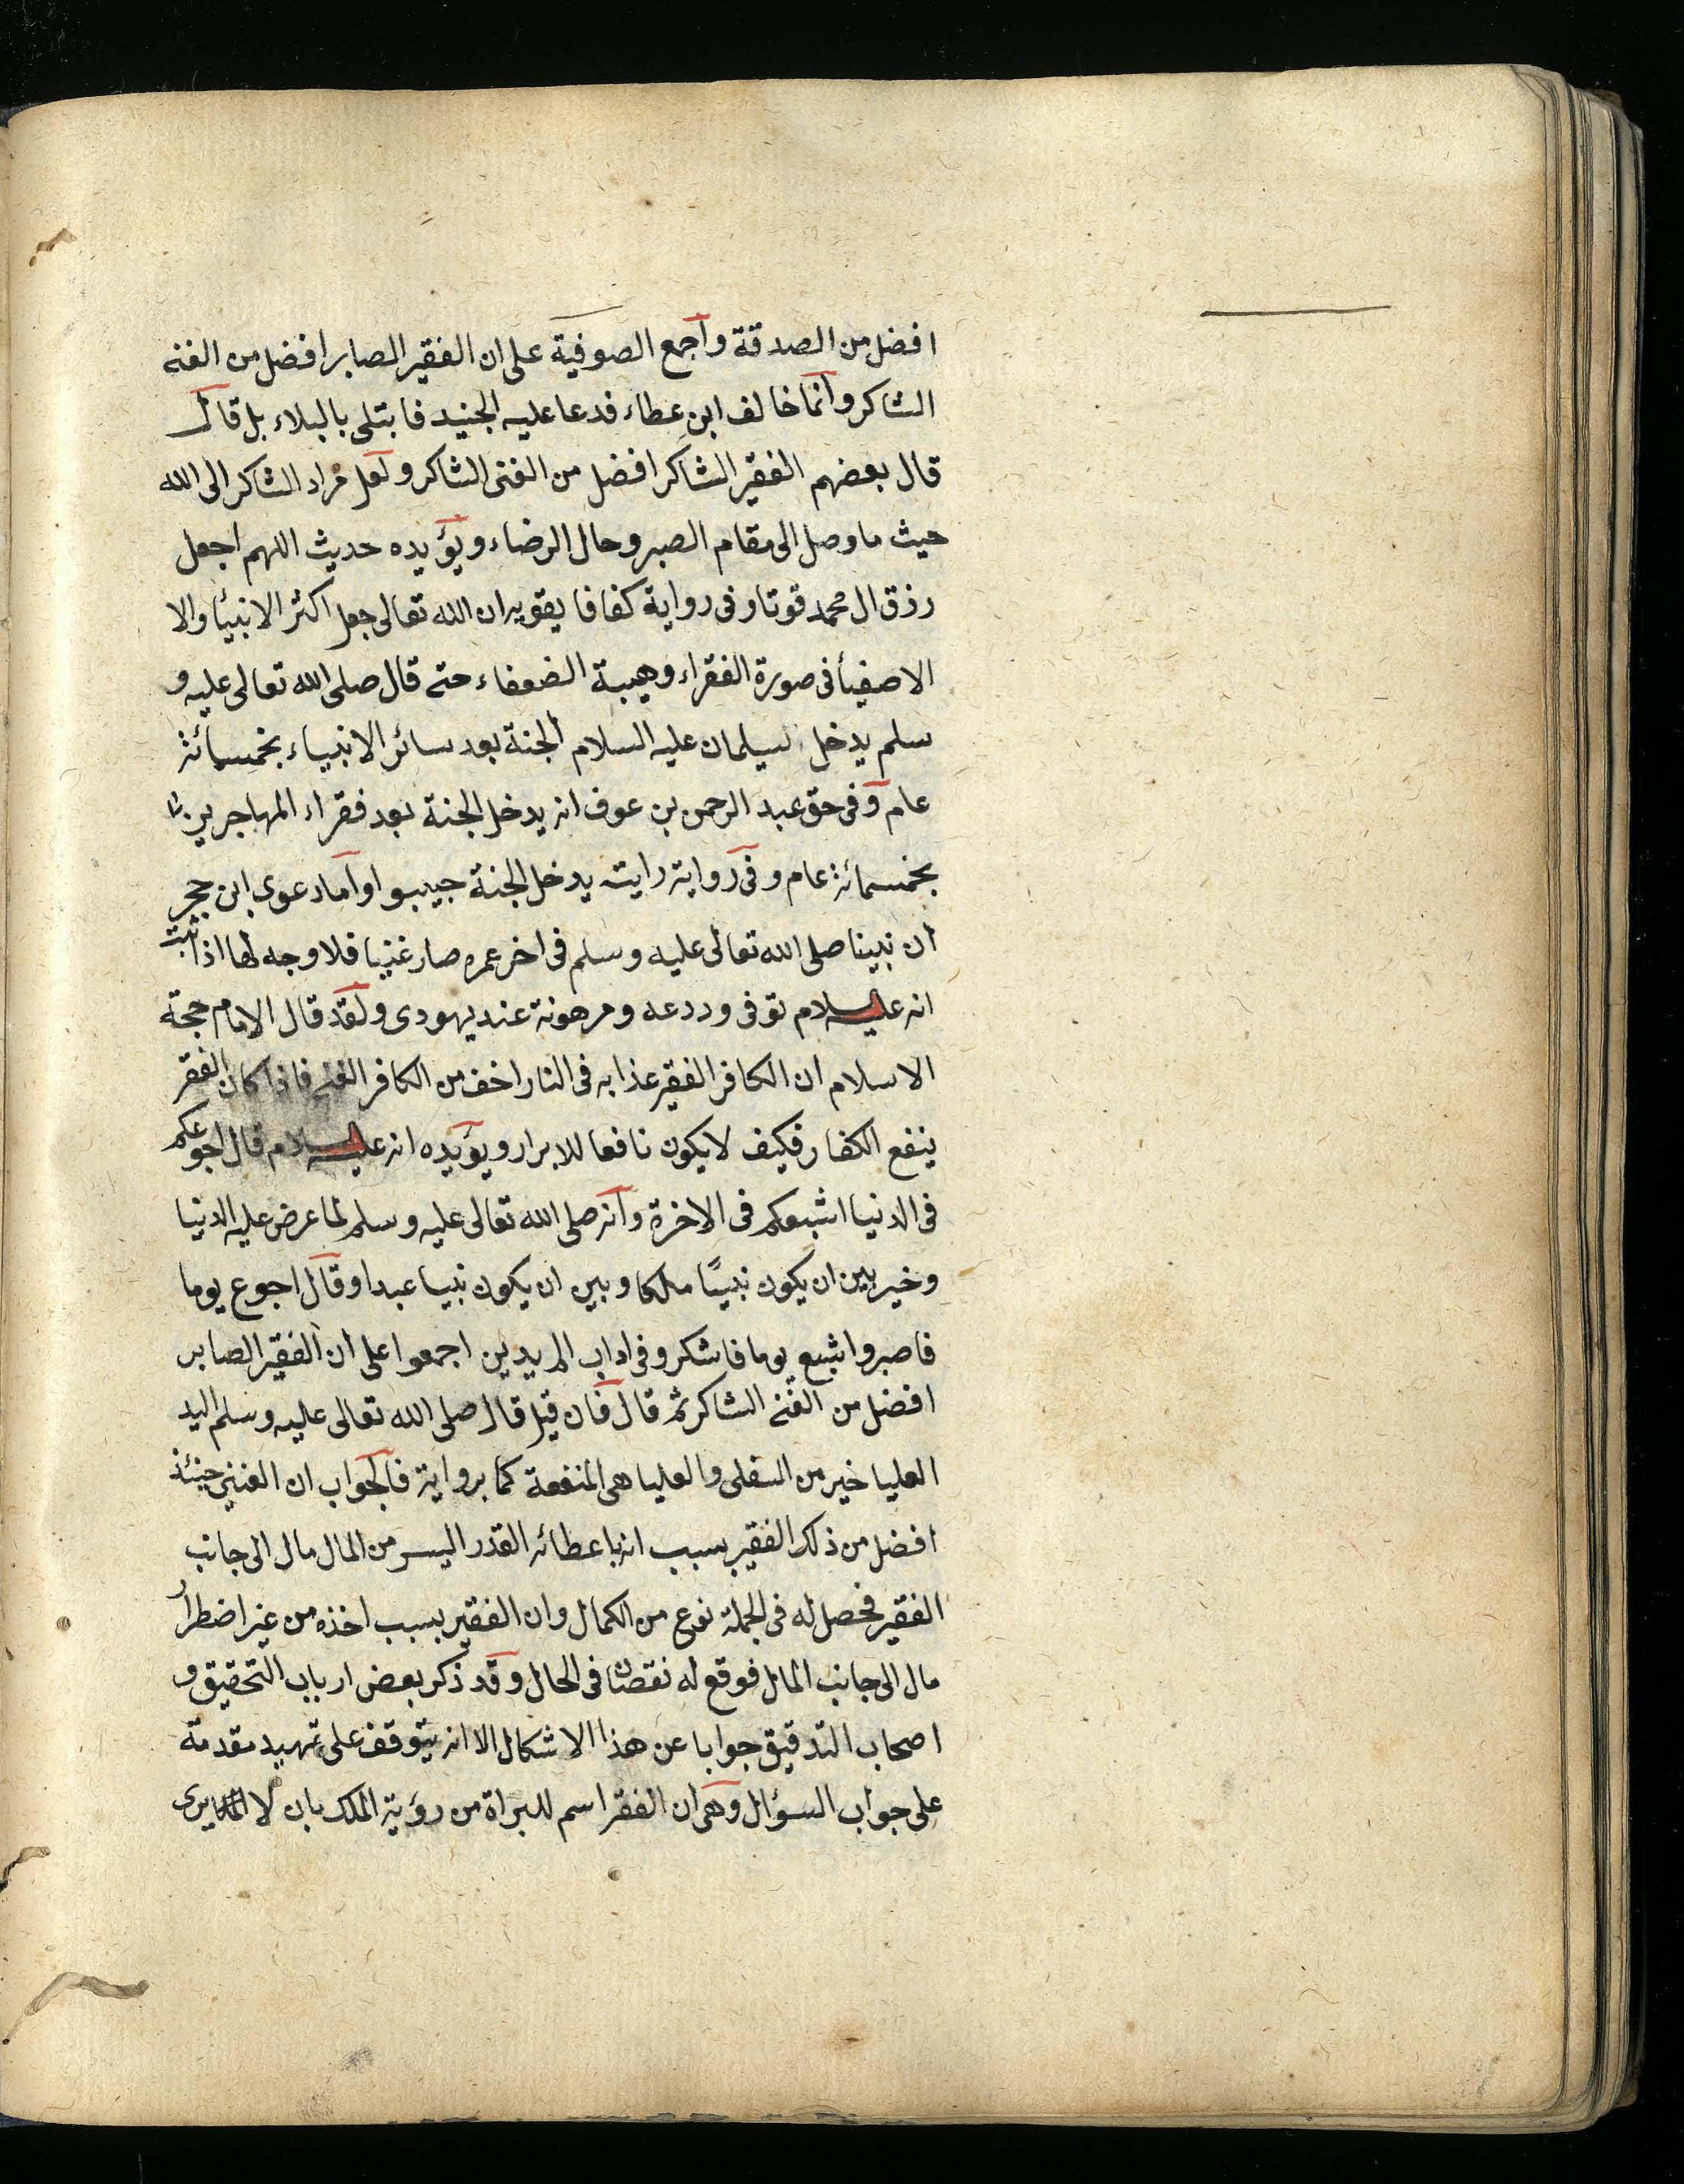 افضل من الصدقة واجمع الصوفية على ان الفقير الصابر افضل من الغنے
الشاكر وانما خالف ابن عطاء فدعا عليه الجنيد فابتلى بالبلاء بل قال
قال بعضهم الفقير الشاكر افضل من الغنى الشاكر ولعل مراد الشاكر الى الله
حيث ما وصل الى مقام الصبر وحال الرضاء ويؤيده حديث اللهم اجعل
رزق ال محمد قوتا وفى رواية كفافا يقويه ان الله تعالى جعل اكثر الانبيأ والا
الاصفيأ فى صورة الفقراء وهيبة الضعفاء حتے قال صلى الله تعالى عليه و
سلم يدخل سيلمان عليه السلام الجنة بعد سائر الانبياء بخمسمائة
عام وفى حق عبد الرحمن بن عوف انه يدخل الجنة بعد فقراء المهاجرين
بخمسمائة عام وفى رواية رايته يدخل الجنة حيبوا واما دعوى ابن حجر
ان نبينا صلى الله تعالى عليه وسلم فى اخر عمره صار غنيا فلا وجه لها اذ ثبت
انه عليه السلام توفى ودرعه ومرهونة عند يهودى ولقد قال الامام حجة
الاسلام ان الكافر الفقير عذابه فى النار اخف من الكافر الغنے فاذا كان الفقر
ينفع الكفار فكيف لا يكون نافعا للابرار ويؤيده انه عليه السلام قال اجوعكم
فى الدنيا اشبعكم فى الاخرة وانه صلى الله تعالى عليه وسلم لما عرض عليه الدنيا
وخير بين ان يكون نبيًا ملكا وبين ان يكون نبيا عبدا وقال اجوع يوما
فاصبر واشبع يوما فاشكر وفى اداب المريدين اجمعوا على ان الفقير الصابر
افضل من الغنے الشاكر ثم قال فان قيل قال صلى الله تعالى عليه وسلم اليد
العليا خير من السفلى والعليا هى المنفعة كما برواية فالجواب ان الغنى حينئذ
افضل من ذلك الفقير بسبب انه باعطائه القدر اليسر من المال مال الى جانب
الفقير فحصل له فى الجملة نوع من الكمال وان الفقير بسبب اخذه من غير اضطرار
مال الى جانب المال فوقع له نقصان فى الحال وقد ذكر بعض ارباب التحقيق و
اصحاب التدقيق جوابا عن هذا الاشكال الا انه يتوقف على تمهيد مقدمة
على جواب السؤال وهى ان الفقر اسم للبراة من رؤية الملك بان لا يرى